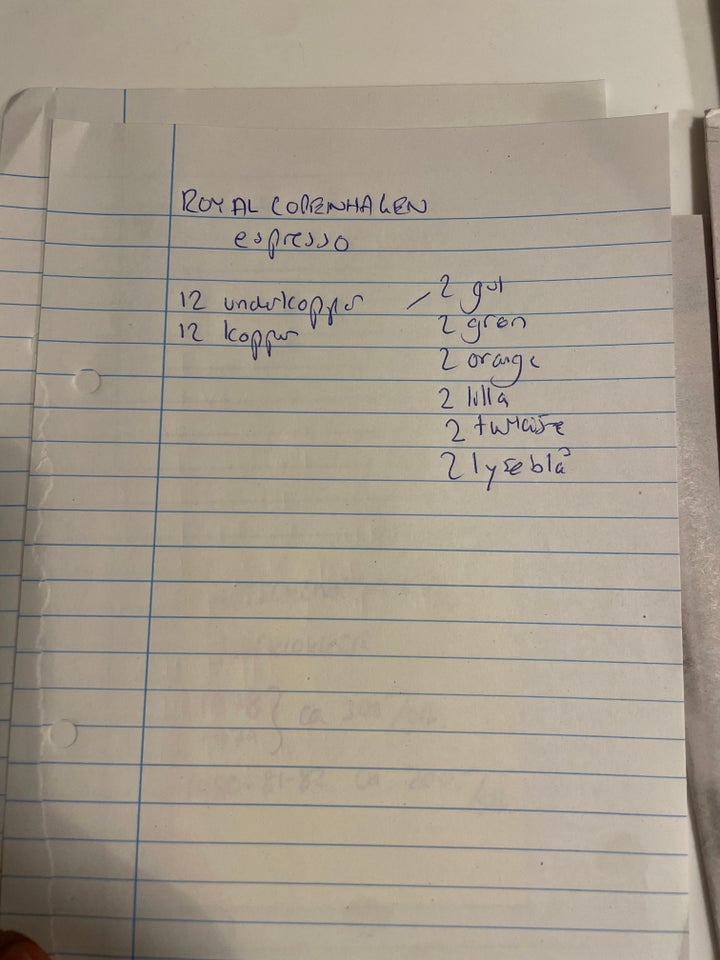 ROYAL COPENHAGEN
espresso
12 underkopper
12 kopper
2 gul
2 grøn
2 orange
2 lilla
2 turkise
2 lyseblå